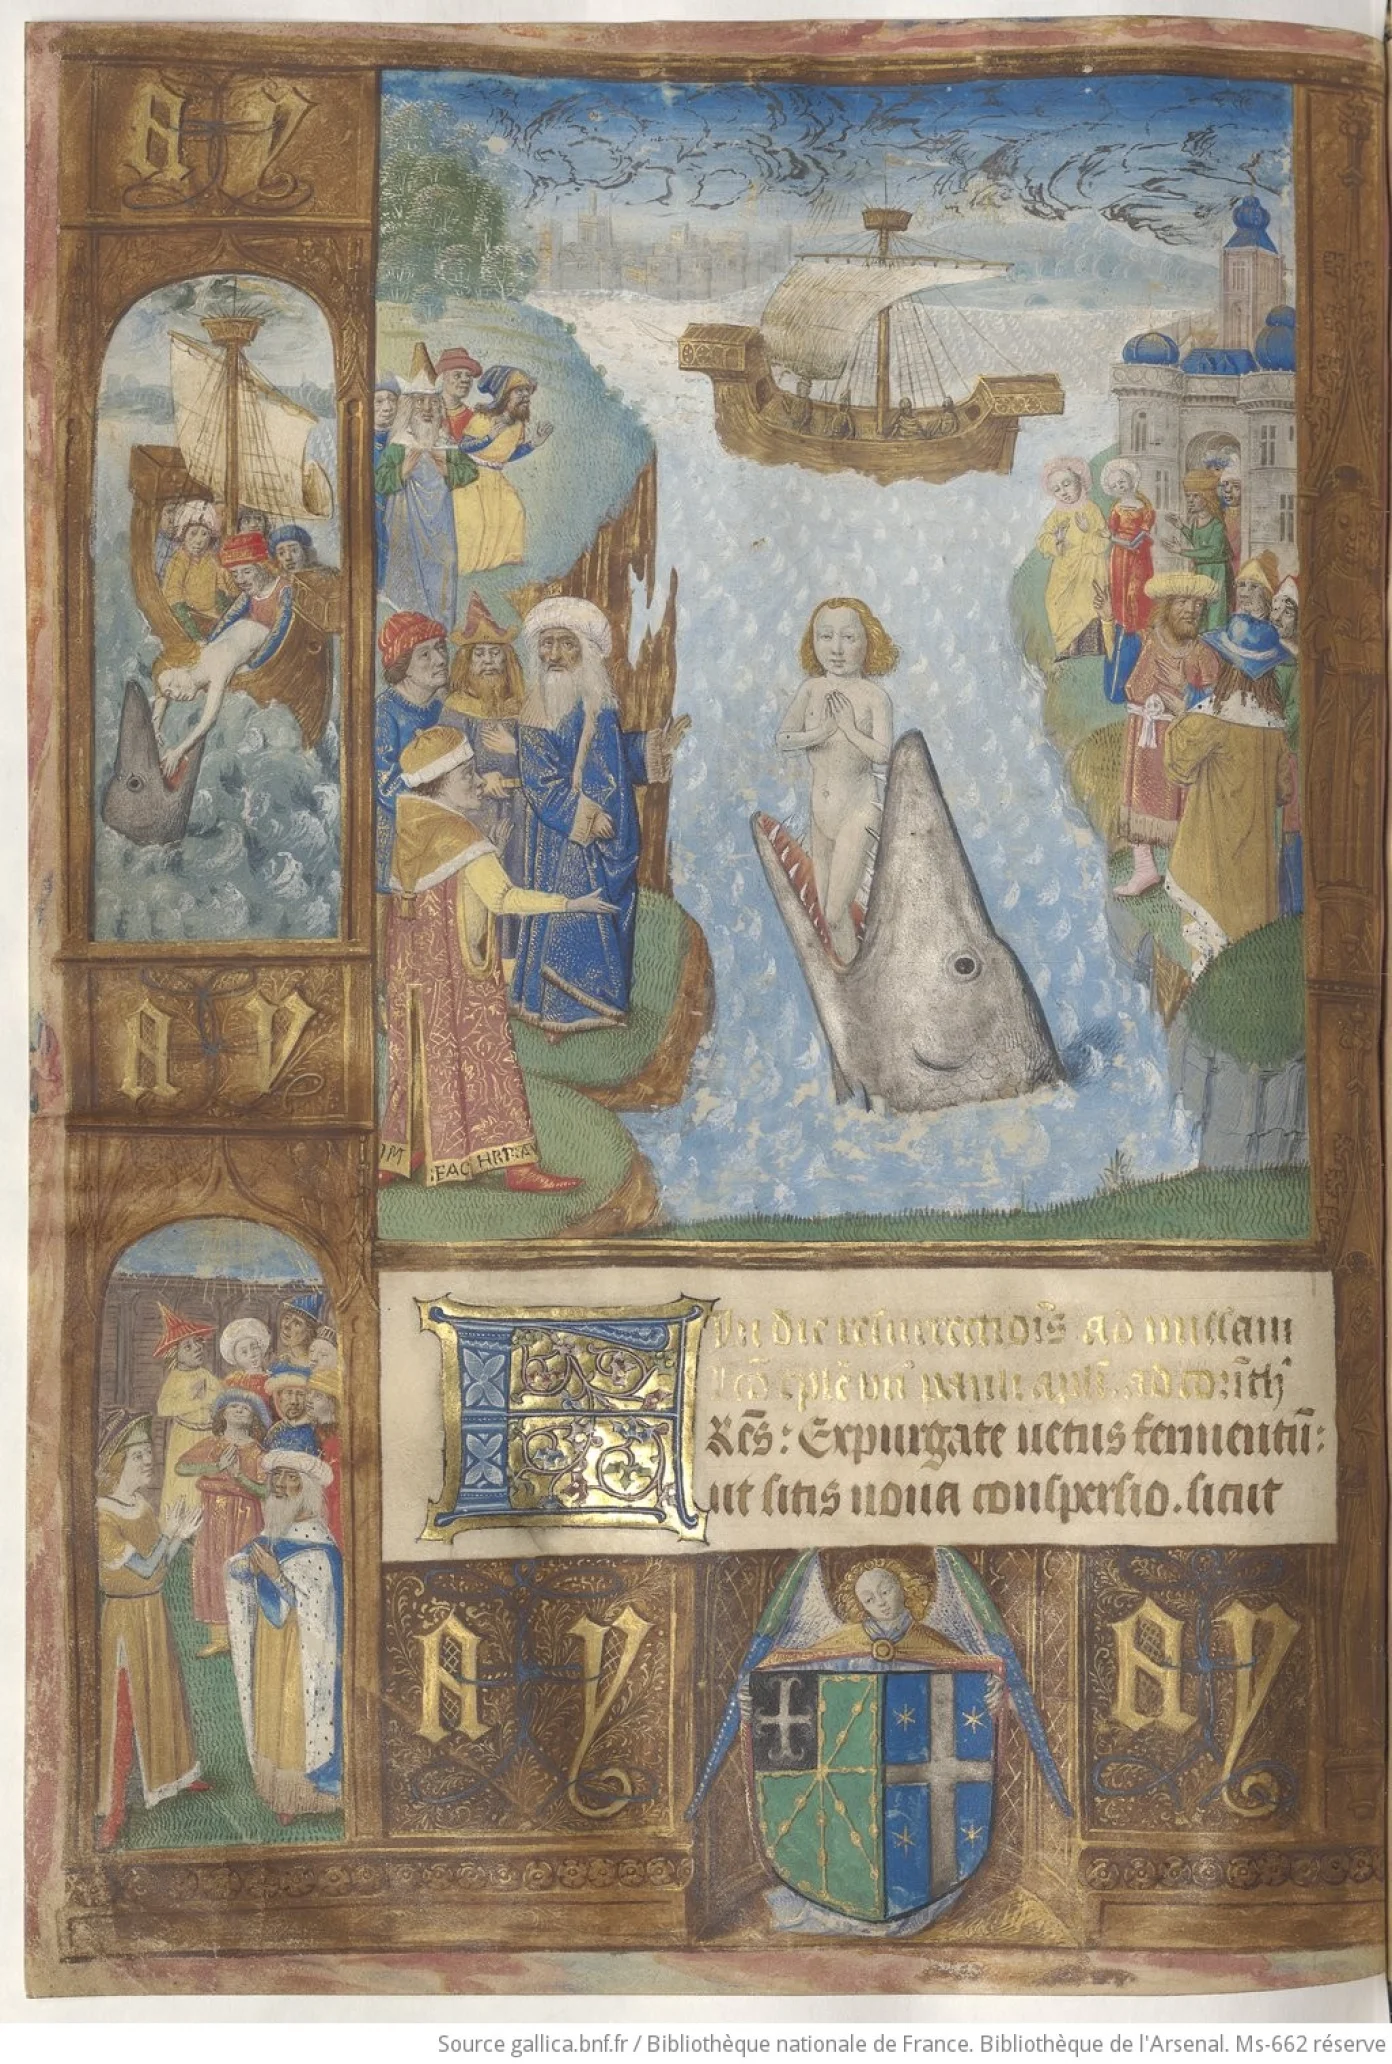 A Y
A Y
IM :FAC HRTRAV
In die resurrectiōīs ad missam
lc̄o ep̄lē bti pauli apl̄i. ad corīth̄
Rēs : Expurgate uetus fermentū :
ut sitis noua conspersio . sicut
A Y
A Y
Source gallica.bnf.fr / Bibliothèque nationale de France. Bibliothèque de l'Arsenal. Ms-662 réserve